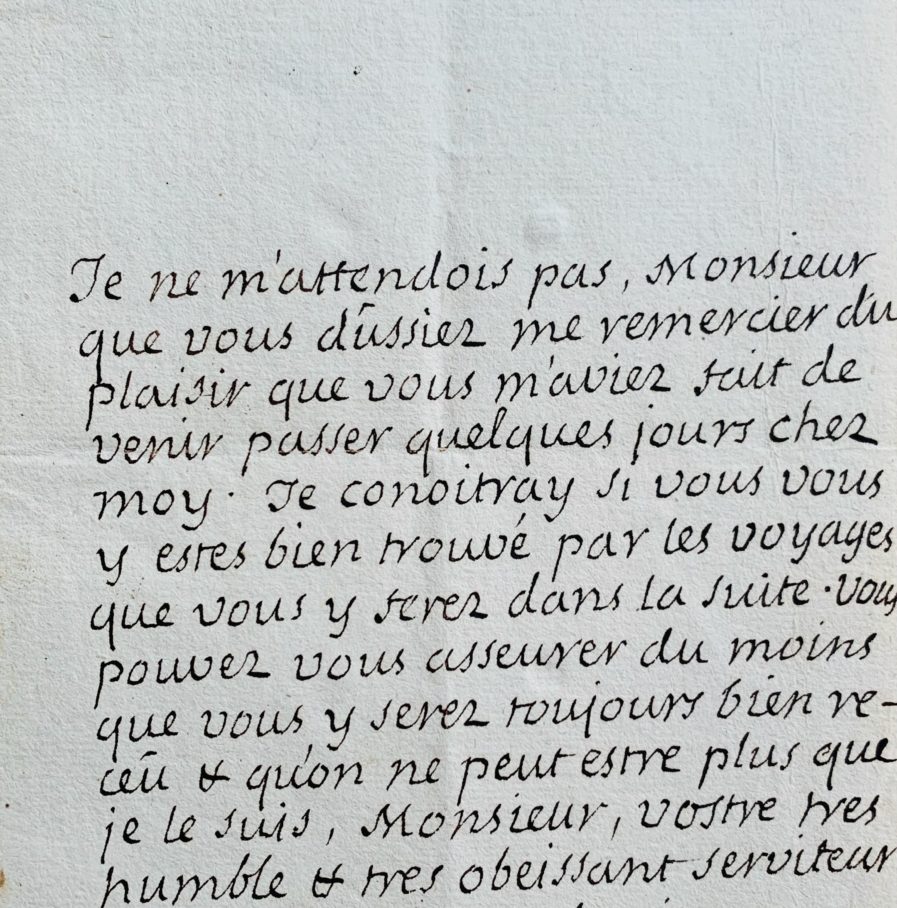 Je ne m'attendois pas, Monsieur
que vous dûssiez me remercier du
plaisir que vous m'aviez fait de
venir passer quelques jours chez
moy. Je conoitray si vous vous
y estes bien trouvé par les voyages
que vous y ferez dans la suite. vous
pouvez vous asseurer du moins
que vous y serez toujours bien re-
ceû & qu'on ne peut estre plus que
je le suis, Monsieur, vostre tres
humble & tres obeissant serviteur